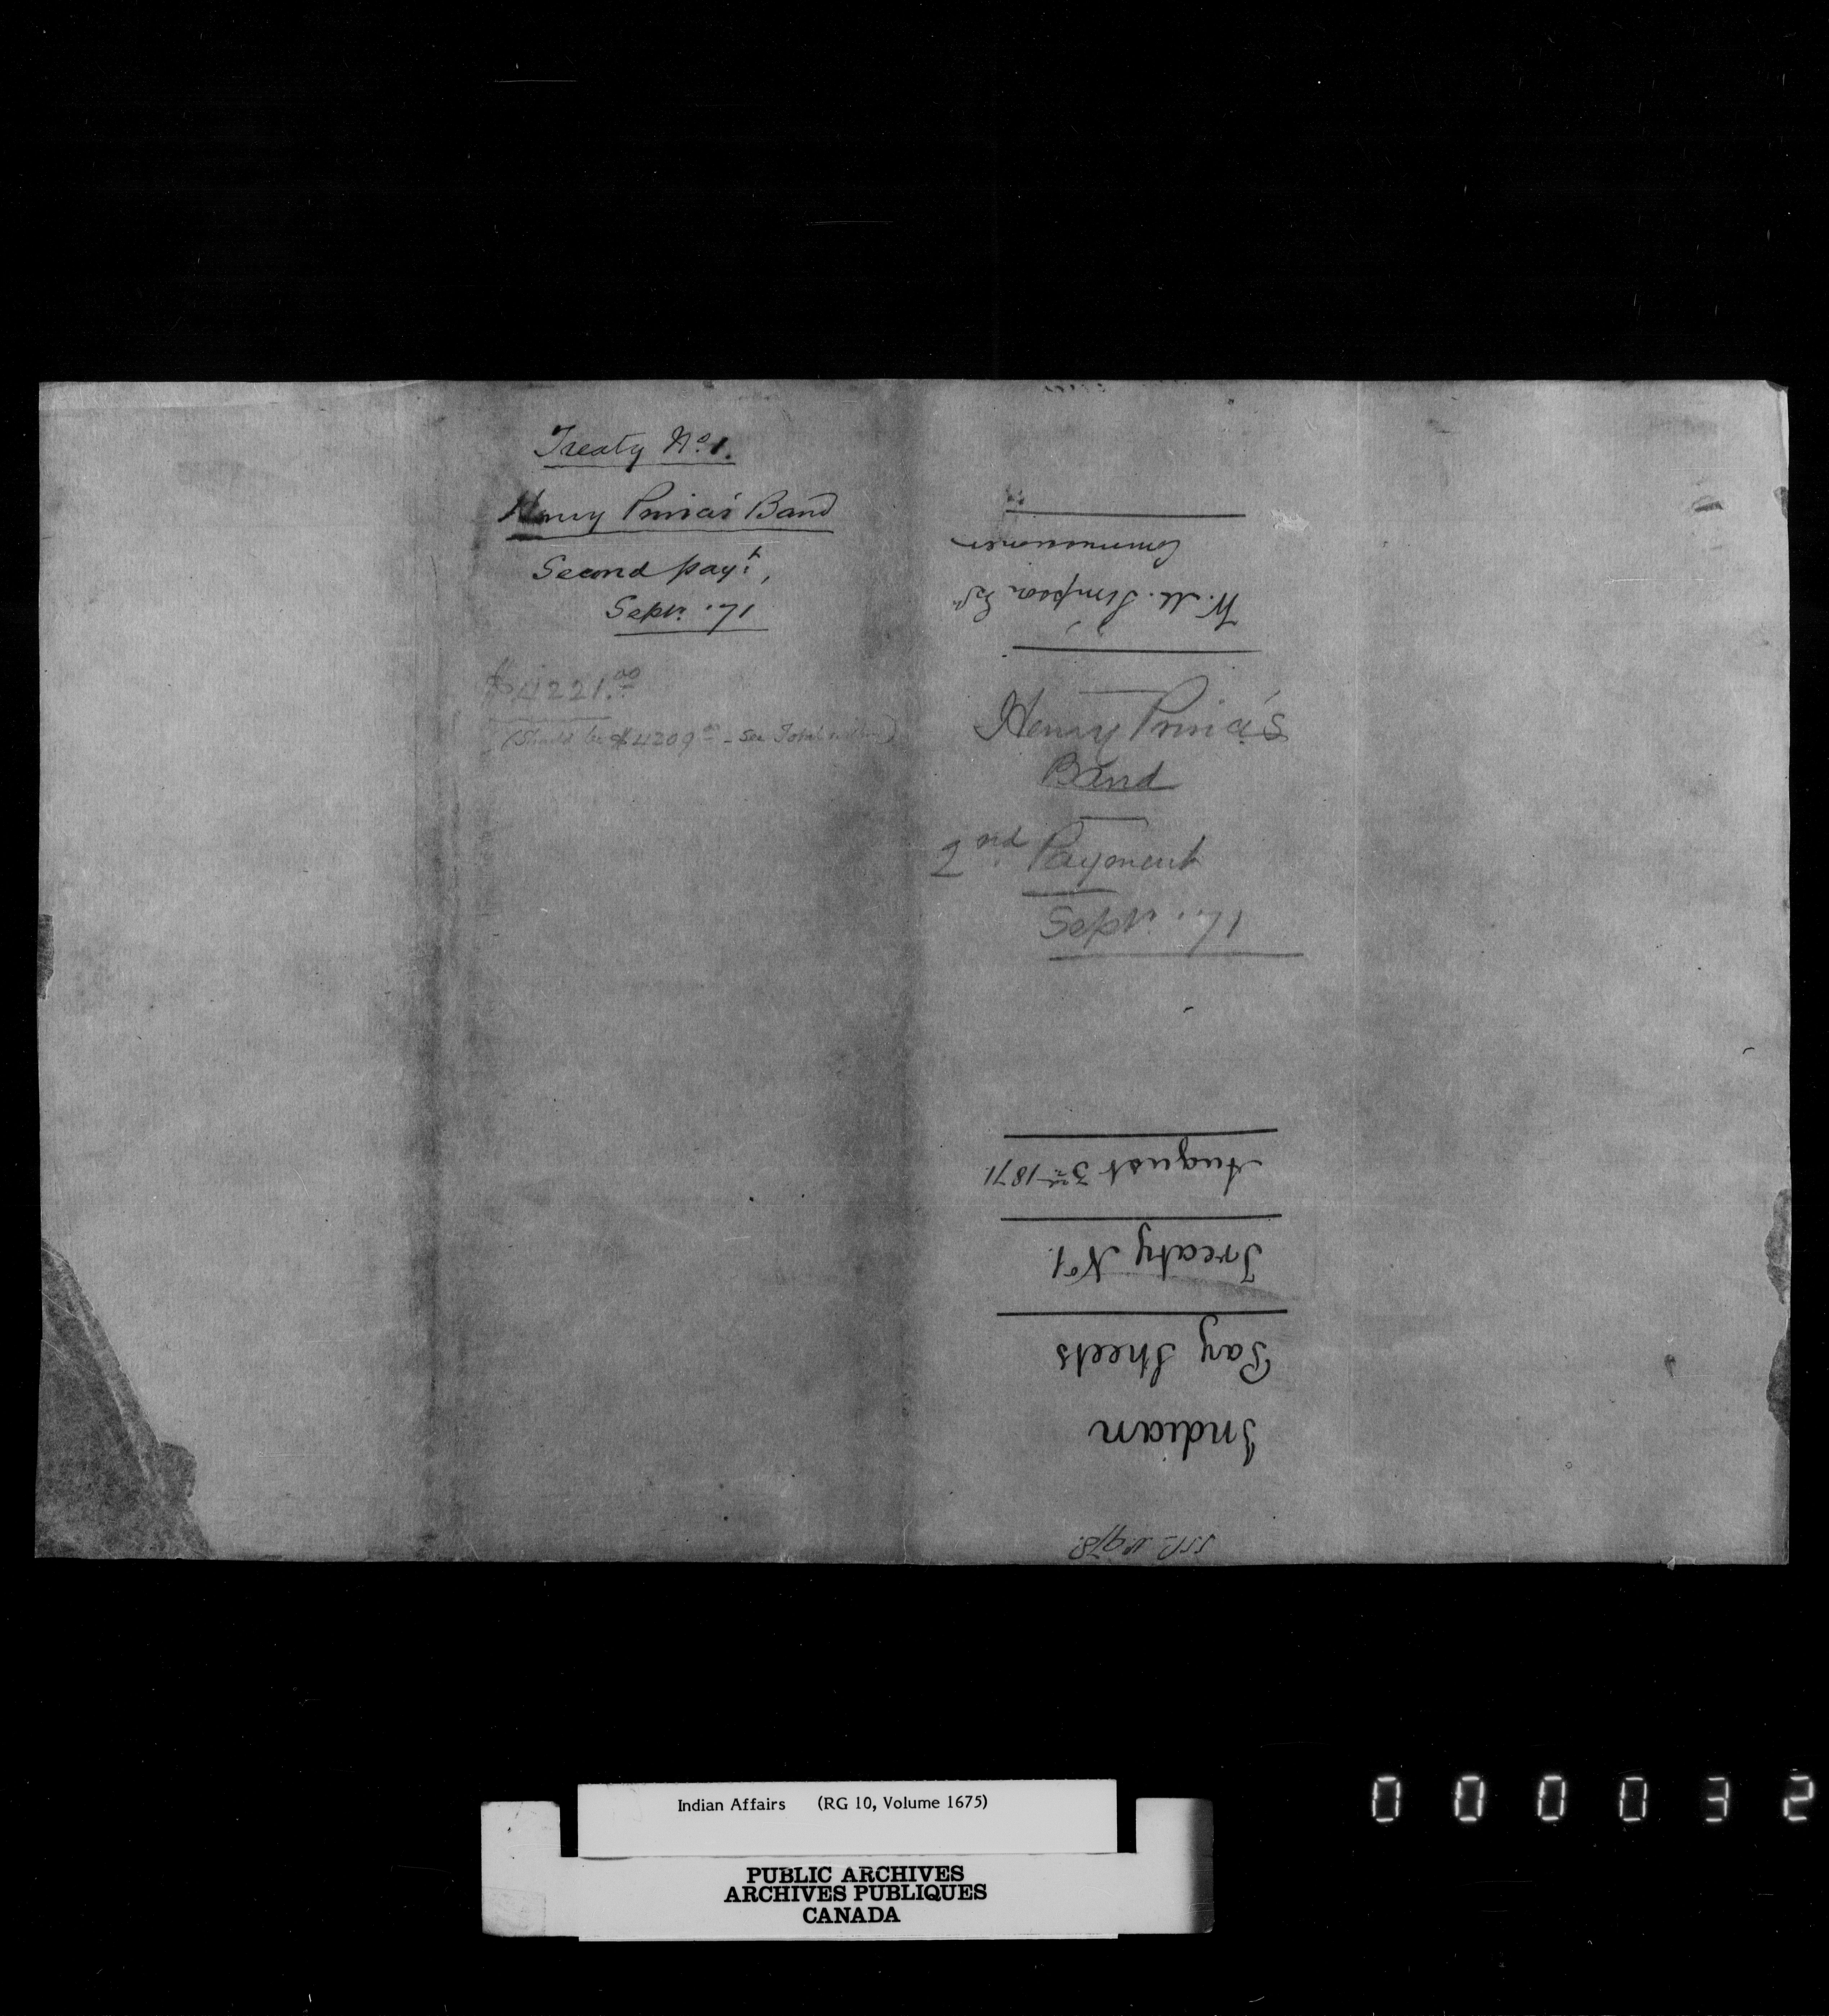 Treaty No. 1.
Henry Prince's Band
Second payt,
Septr. '71
$4221.00
(Should be $4209.00 - See Total within)
Henry Prince's
Band
2nd Payment
Septr. '71
Indian
Pay Sheets
Treaty No 1.
August 3rd 1871.
W. M. Simpson Esqr
Commissioner
Indian Affairs (RG 10, Volume 1675)
PUBLIC ARCHIVES
ARCHIVES PUBLIQUES
CANADA
000032